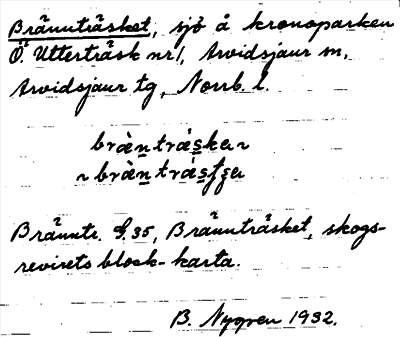 Brännträsket, sjö å kronoparken
Ö. Utterträsk nr 1, Arvidsjaur sn,
Arvidsjaur tg, Norrb. l.
bràn̲trás̲ka ~
~ bràn̲trás̲
Bränntr. G. 35, Brännträsket, skogs-
revirets block-karta.
B. Nygren 1932.